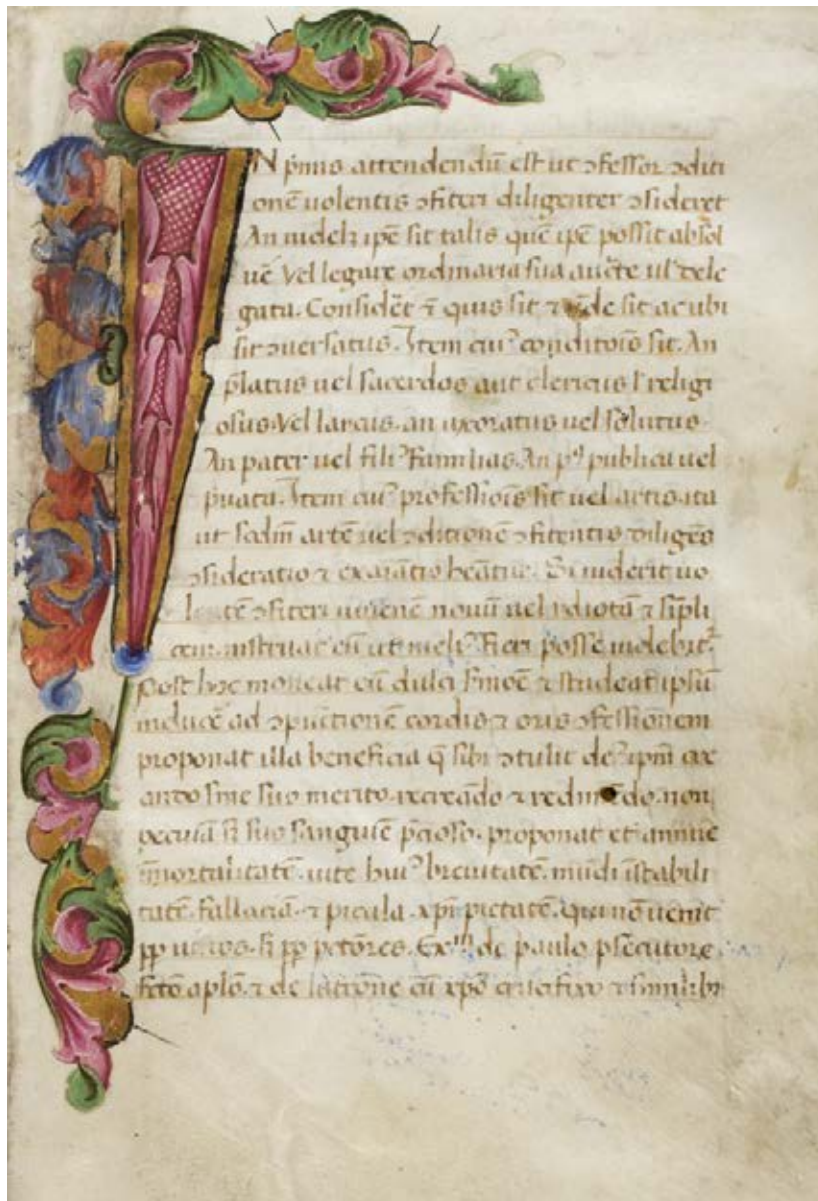 IN p̄mis attendendū est ut ꝯfessor ꝯditi
onē uolentis ꝯfiteri diligenter ꝯsideret
An uidelꝫ ip̄e sit talis quē ip̄e possit absol
uē Vel legare ordinaria sua auc̄te ul' dele
gata. Considēt ⁊ quis sit ⁊ ūde sit ac ubi
sit ꝯuersatus. Item cuiꝰ conditōis sit. An
p̄latus uel sacerdos aut clericus l' religi
osus. Vel laycus. an uxoratus uel solutus.
An pater uel filiꝰ familias. An publica uel
p̄uata. Item cuiꝰ professiōis sit uel artis. ita
ut scdm̄ artē uel ꝯditionē ꝯfitentis diligēs
ꝯsideratio ⁊ exaīatio heātur. Si uiderit uo
lentē ꝯfiteri iuuenē nouū uel ydiotā ⁊ sīpli
cem. instruat eū ut meliꝰ fieri posse uidebit᷑.
Post hec moneat eū dulci s̄moē ⁊ studeat ipsū
inducē ad ꝯpūctionē cordis ⁊ oris ꝯfessionem
proponat illa beneficia q̄ sibi ꝯtulit deꝰ ipm̄ cre
ando sine suo merito. recreādo ⁊ redimēdo. non
pecuīa sꝫ suo sanguīe p̄cioso. proponat et anime
īmortalitatē. uite huiꝰ breuitatē. mūdi īstabili
tatē. fallaciā. ⁊ picula. xp̄i pietatē. qui nō uenit
pp̄ iustos. sꝫ pp̄ petōres. Exᵐ de paulo psecutore
fc̄to aplo. ⁊ de latrōne cū xp̄o crucifixo ⁊ similibꝫ